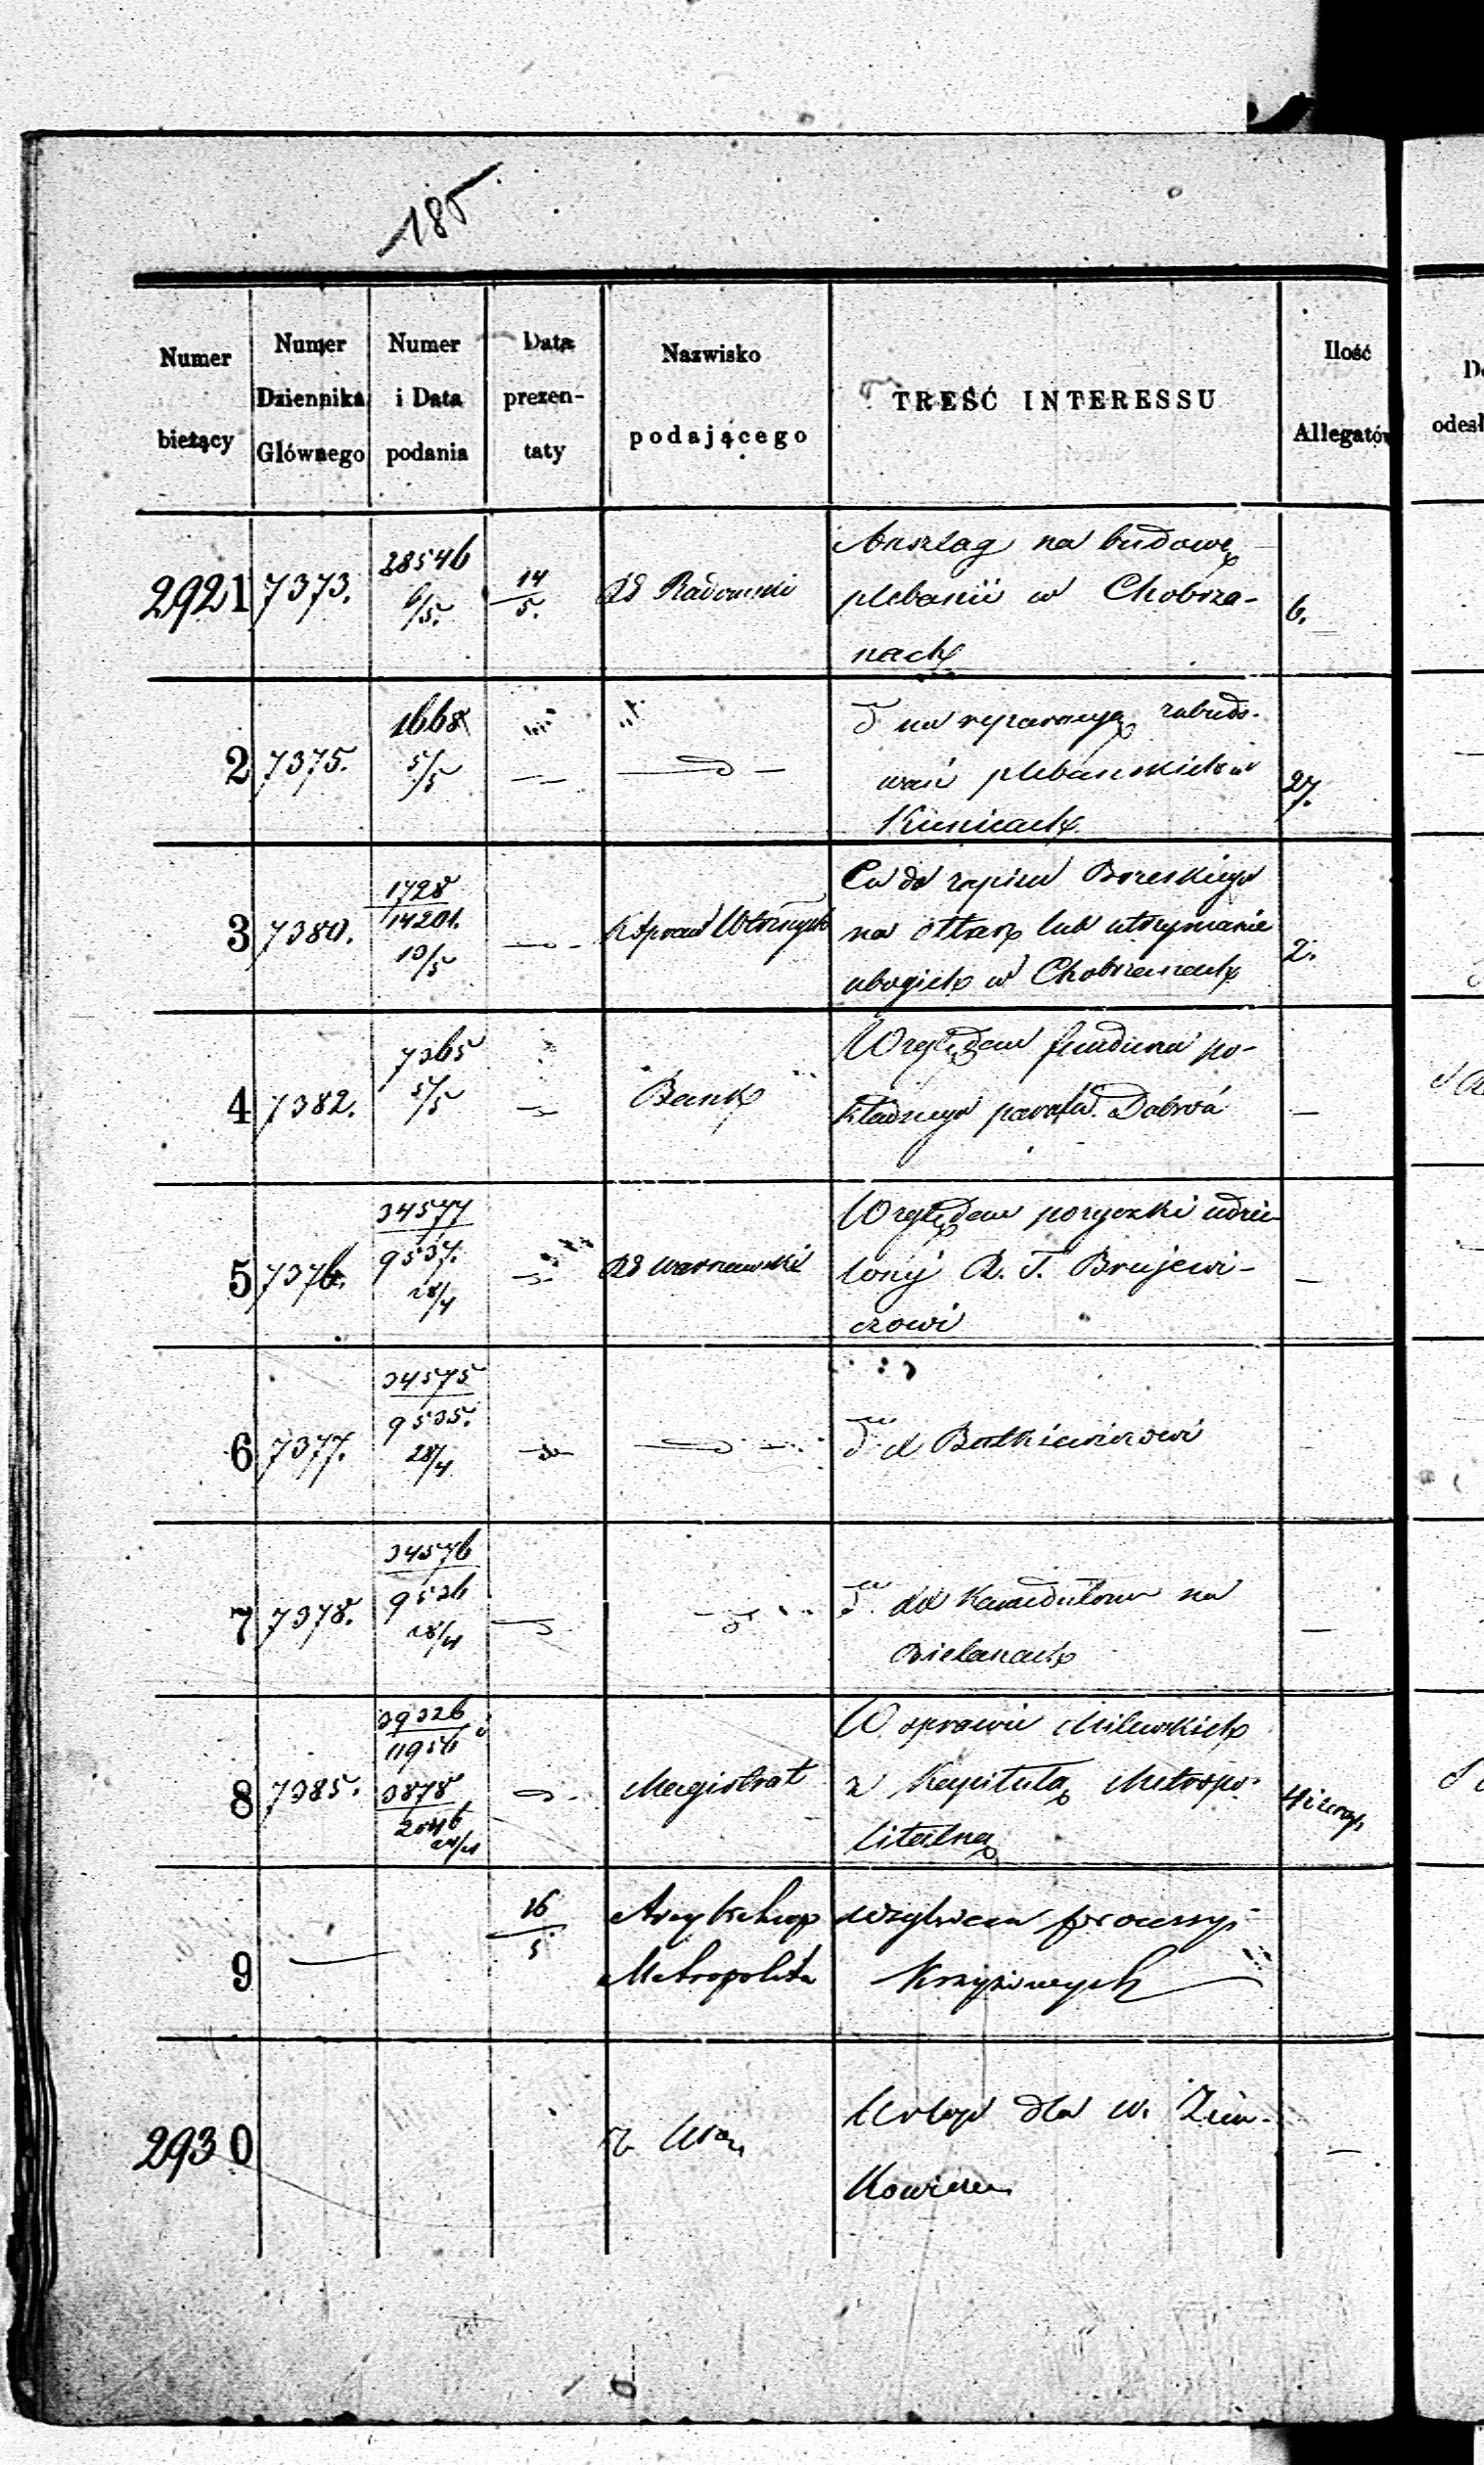 185
Numer bieżący
Numer Dziennika Głównego
Numer i Data podania
Data prezentaty
Nazwisko podającego
TREŚĆ INTERESSU
Ilość Allegatów
2921 7373. 28546 6/5. 14/5. RG Radomski Anszlag na budowę 6.
plebanii w Chobrza-
nach
2 7375. 1668 5/5 — —„— do na reparacyę zabudo- 27.
wań plebańskich w
Kunicach
3 7380. 1728/14201. 10/5 —„— K Spraw Wewnętr Co do zapisu Boreskiego 2.
na ołtarz lub utrzymanie
ubogich w Chobrzanach
4 7382. 7365 5/5 —„— Bank Względem funduszu po- —
kładnego parafii Dobrzá
5 7376. 34577/9537. 28/4 —„— RG Warszawski Względem pożyczki udzie- —
lonéj R. T. Brujewi-
czowi
6 7377. 34575/9535. 28/4 —„— —„— do d Bortkiewiczowi
7 7378. 34576/9536 28/4 —„— —„— do dla Kamedułów na —
Bielanach
8 7385. 39326/11956 3878/2046 24/4 —„— Magistrat W sprawie Milewskich
z Kapitułą Metropo-
litalną
9 — 16/5 Arcybiskup względem processyi
Metropolita Krzyżowych
2930 Urlop dla W. Zien- —
kowicza